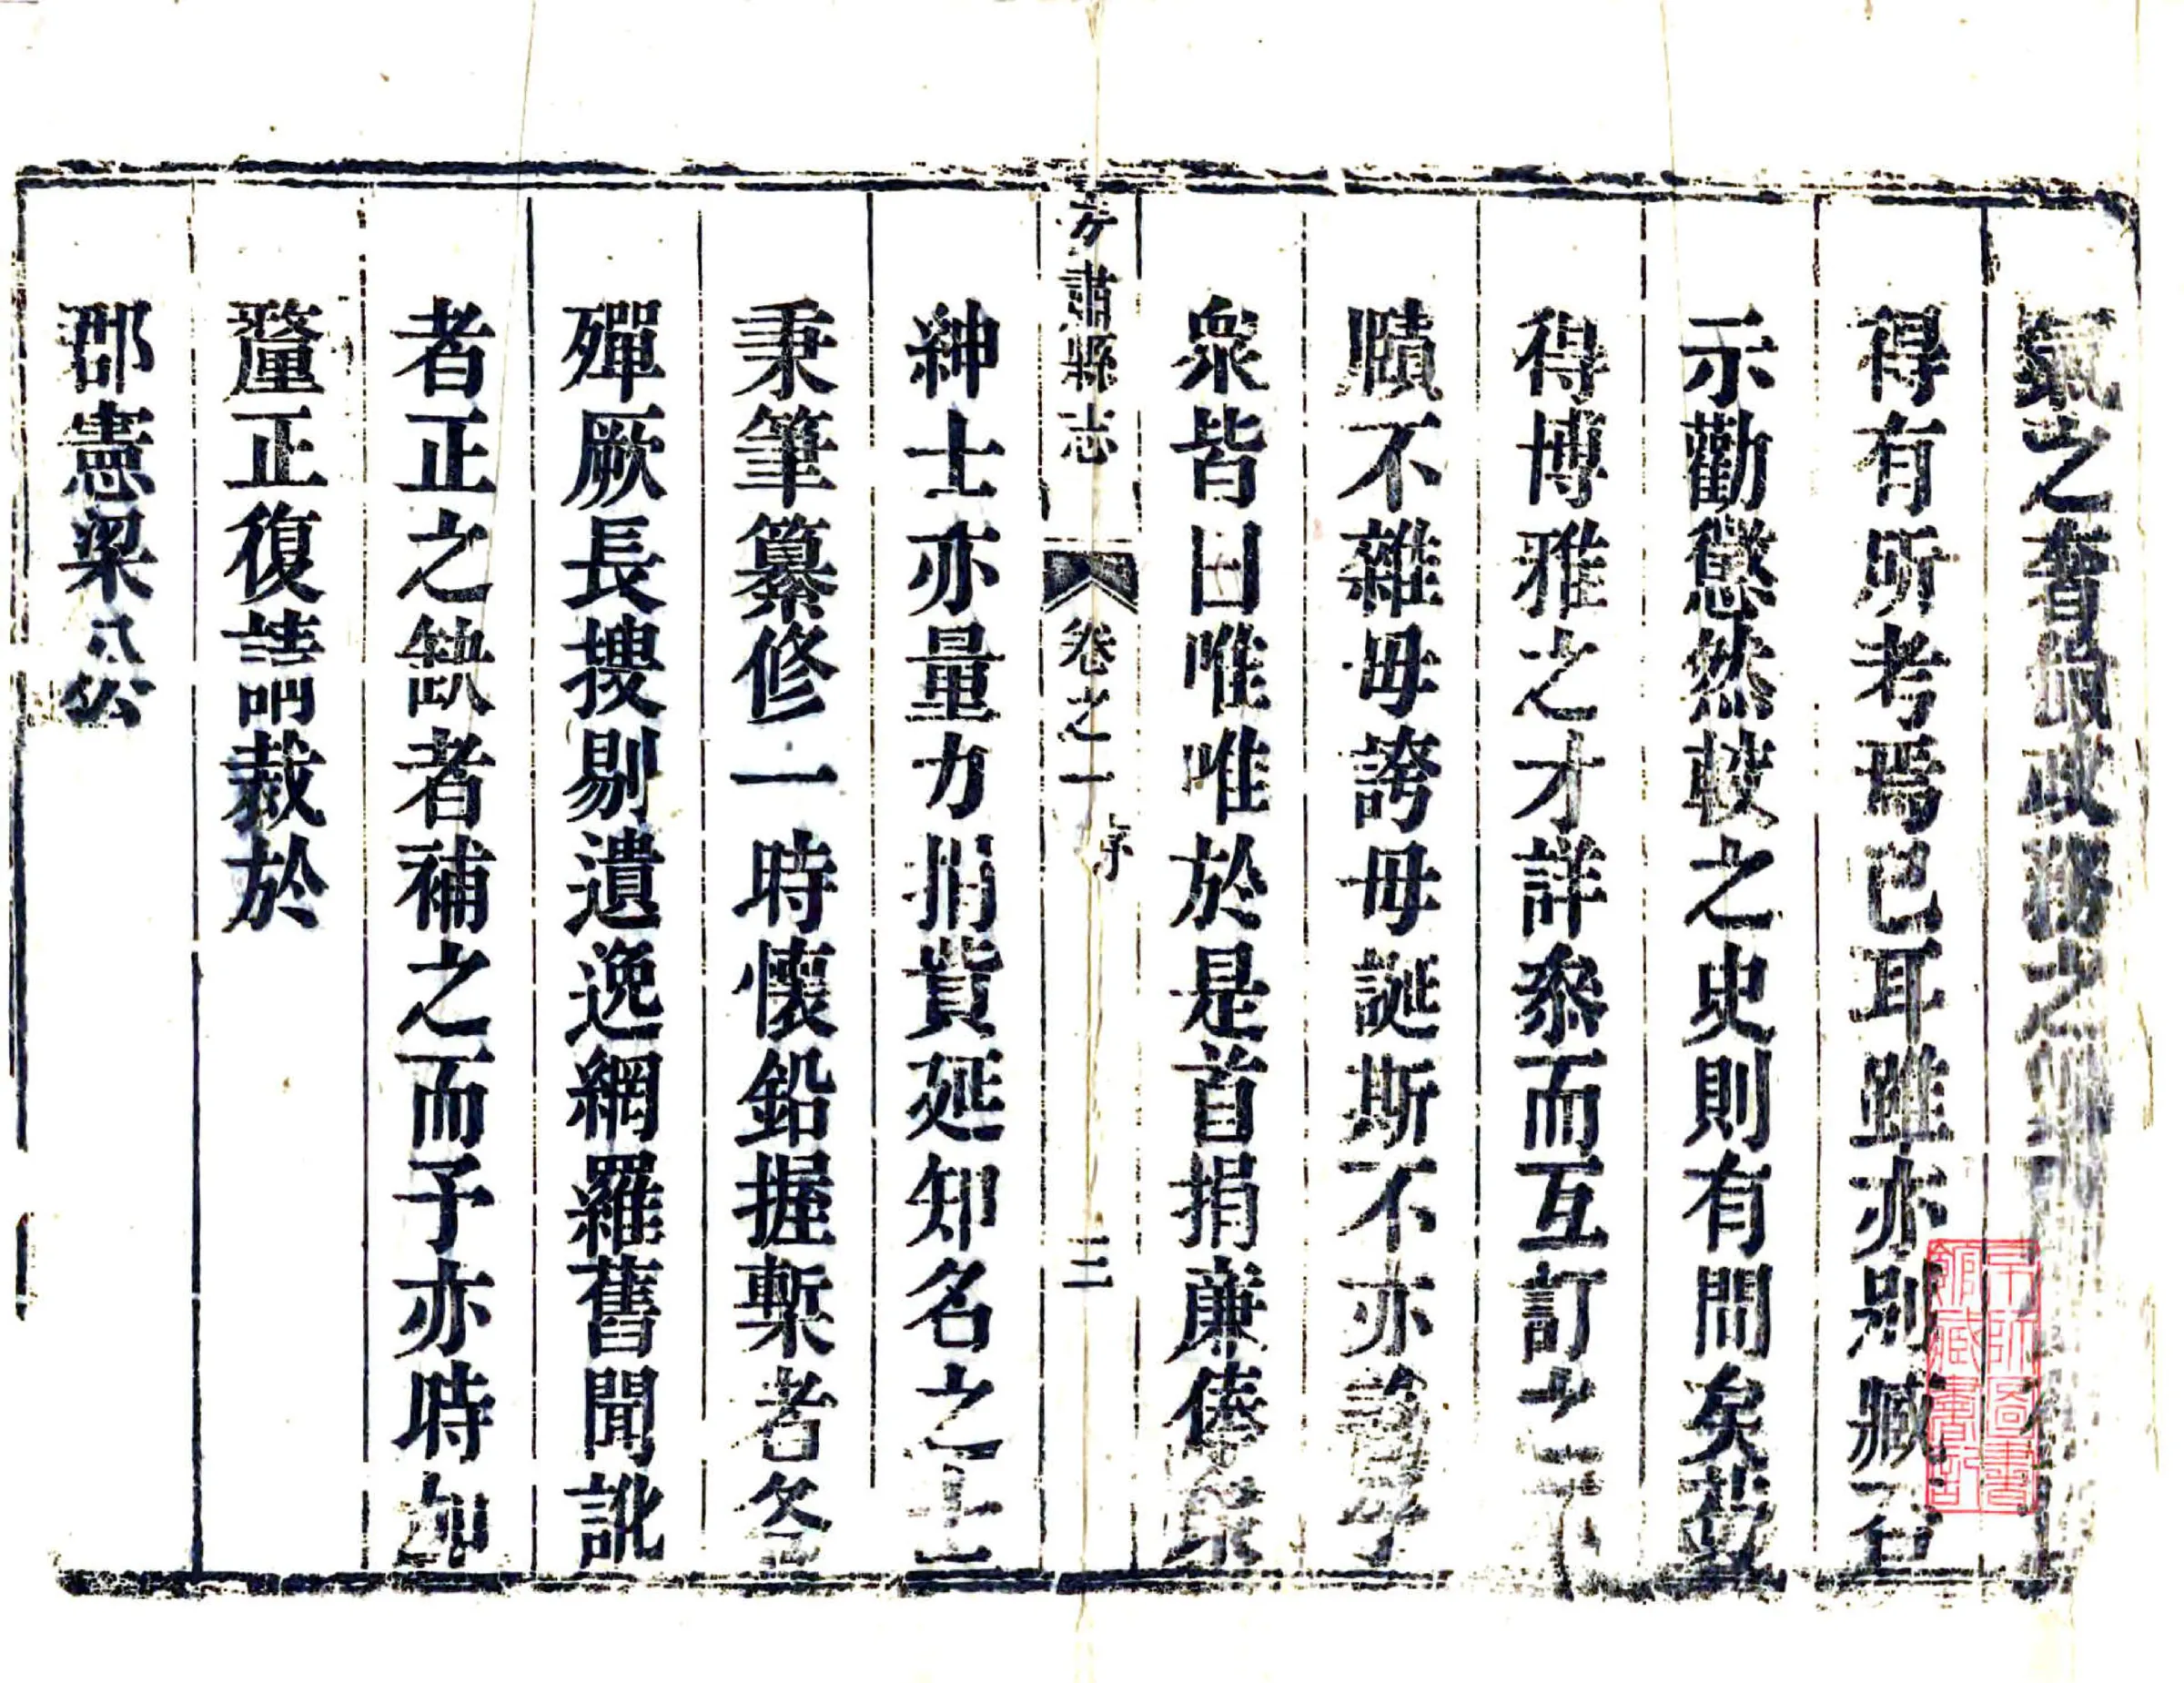 氣之耆最政務之
得有所考焉已耳雖亦別臧否
示勸懲然較之史則有間矣茲
得博雅之才詳叅而互訂之
賾不雜毋誇毋誕斯不亦
衆皆曰唯唯於是首捐亷俸
方肅縣志
卷之一
序
三
紳士亦量力捐貲延知名之士
秉筆纂修一時懷鉛握槧者各
殫厥長搜剔遺逸網羅舊聞訛
者正之缺者補之而予亦時加
釐正復請裁於
郡憲梁公
京師圖書
館藏書記